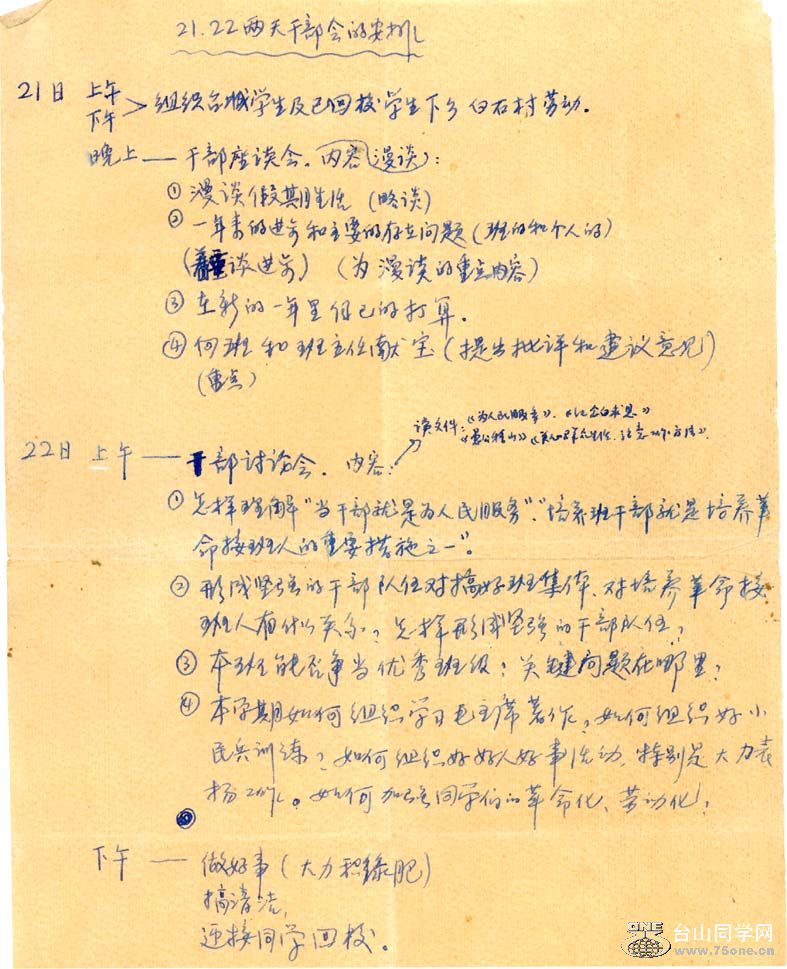 21.22两天干部会的安排
21日 上午
下午 > 组织台城学生及已回校学生下乡白石村劳动.
晚上 — 干部座谈会.内容(漫谈):
① 漫谈假期生活 (略谈)
② 一年来的进步和主要的存在问题(班的和个人的)
(着重谈进步) (为漫谈的重点内容)
③ 在新的一年里自己的打算.
④ 向班和班主任献宝(提出批评和建议意见)
(重点)
读文件:《为人民服务》.《纪念白求恩》
《愚公移山》《关心群众生活,注意工作方法》.
22日 上午 — 干部讨论会. 内容:
① 怎样理解“当干部就是为人民服务”.“培养班干部就是培养革
命接班人的重要措施之一”.
② 形成坚强的干部队伍对搞好班集体、对培养革命接
班人有什么关系?怎样形成坚强的干部队伍?
③ 本班能否争当优秀班级?关键问题在哪里?
④ 本学期如何组织学习毛主席著作?如何组织好小
民兵训练?如何组织好好人好事活动,特别是大力表
扬 。如何加强同学们的革命化、劳动化?
下午 — 做好事(大力积绿肥)
搞清洁,
迎接同学回校.
ONE 台山同学网
www.75one.cn